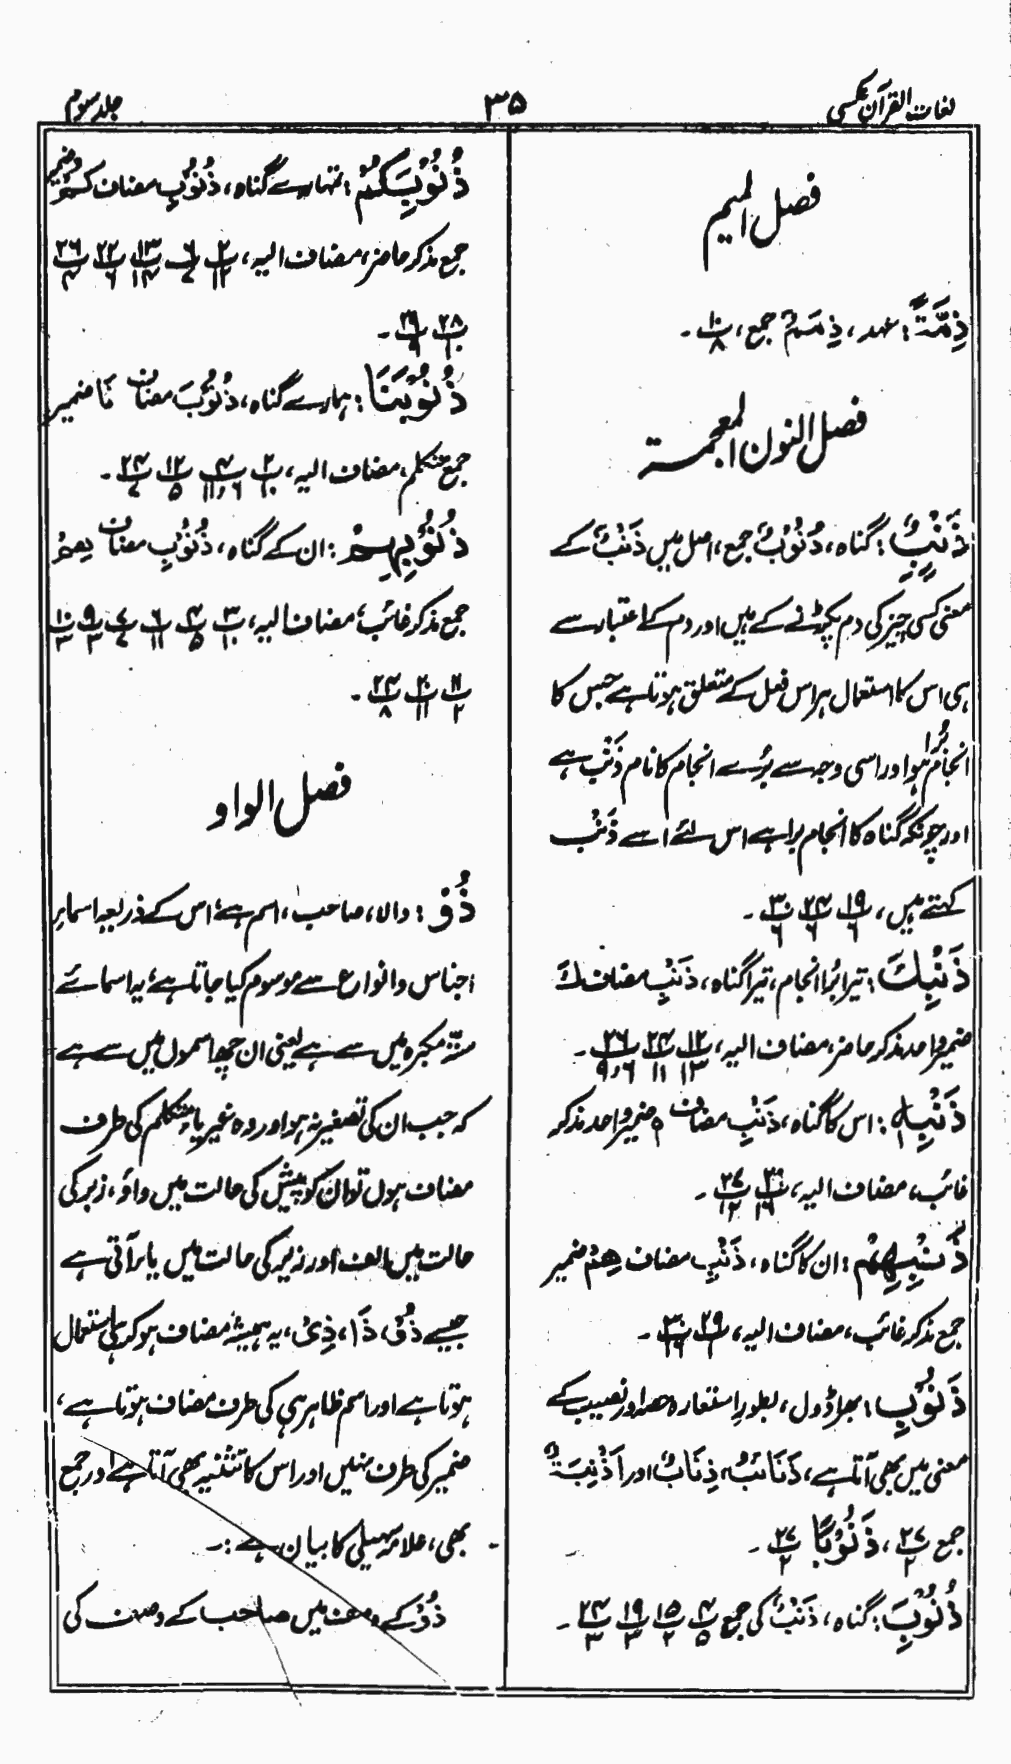 لغات القرآن عکسی
۳۵
جلد سوم
فصل المیم
ذِمَّةً: عہد، ذِمَمٌ جمع، پ۱۰/۸ ۔
فصل النون المعجمة
ذَنْبٌ: گناہ، ذُنُوْبٌ جمع، اصل میں ذَنْبٌ کے
معنی کسی چیز کی دم پکڑنے کے ہیں اور دم کے اعتبار سے
ہی اس کا استعمال ہر اس فعل کے متعلق ہوتا ہے جس کا
انجام برا ہوا اور اسی وجہ سے بُرے انجام کا نام ذَنْب ہے
اور چونکہ گناہ کا انجام برا ہے اس لئے اسے ذَنْب
کہتے ہیں، پ۱۹/۶ پ۲۴/۶ پ۳۰/۶ ۔
ذَنْبِكَ: تیرا بُرا انجام، تیرا گناہ، ذَنْبِ مضاف كَ
ضمیر واحد مذکر حاضر، مضاف الیہ، پ۱۲/۱۳ پ۲۴/۱۱ پ۲۶/۶،۹ ۔
ذَنْبِهٖ: اس کا گناہ، ذَنْبِ مضاف ہ ضمیر واحد مذکر
غائب، مضاف الیہ، پ۲۰/۱۶ پ۲۷/۱۲ ۔
ذَنْبِهِمْ: ان کا گناہ، ذَنْبِ مضاف هِمْ ضمیر
جمع مذکر غائب، مضاف الیہ، پ۲۹/۱ پ۳۰/۱۶ ۔
ذَنُوْبِ: بھرا ڈول، بطور استعارہ حصہ اور نصیب کے
معنی میں بھی آتا ہے، ذَنَائبُ، ذِنَابٌ اور اَذْنِبَةٌ
جمع پ۲۷/۲، ذَنُوْبًا پ۲۷/۲ ۔
ذُنُوْبَ: گناہ، ذَنْبٌ کی جمع پ۴/۵ پ۱۵/۲ پ۱۹/۳ پ۲۴/۳ ۔
ذُنُوْبَكُمْ: تمہارے گناہ، ذُنُوْبِ مضاف كُمْ ضمیر
جمع مذکر حاضر، مضاف الیہ، پ۳/۱۲ پ۶/۷ پ۱۳/۱۴ پ۲۲/۶ پ۲۶/۴
پ۲۸/۱۰ پ۲۹/۹ ۔
ذُنُوْبَنَا: ہمارے گناہ، ذُنُوْبَ مضاف نَا ضمیر
جمع متکلم، مضاف الیہ، پ۳/۱۰ پ۴/۶،۱۱ پ۱۲/۵ پ۲۴/۷ ۔
ذُنُوْبِهِمْ: ان کے گناہ، ذُنُوْبِ مضاف هِمْ
جمع مذکر غائب، مضاف الیہ، پ۳/۱۰ پ۴/۵ پ۶/۱۱ پ۷/۷ پ۹/۳ پ۱۰/۳
پ۱۱/۲ پ۲۰/۱۱ پ۲۴/۸ ۔
فصل الواو
ذُوْ: والا، صاحب، اسم ہے، اس کے ذریعہ اسماء
اجناس و انواع سے موسوم کیا جاتا ہے، یہ اسمائے
ستّہ مکبرہ میں سے ہے یعنی ان چھ اسموں میں سے ہے
کہ جب ان کی تصغیر نہ ہو اور وہ غیر یاء متکلم کی طرف
مضاف ہوں تو ان کو پیش کی حالت میں واؤ، زبر کی
حالت میں الف اور زیر کی حالت میں یاء آتی ہے
جیسے ذُوْ، ذَا، ذِیْ، یہ ہمیشہ مضاف ہو کر ہی استعمال
ہوتا ہے اور اسم ظاہر ہی کی طرف مضاف ہوتا ہے،
ضمیر کی طرف نہیں اور اس کا تثنیہ بھی آتا ہے اور جمع
بھی، علامہ سہیلی کا بیان ہے :۔
ذُوْ کے وصف میں صاحب کے وصف کی